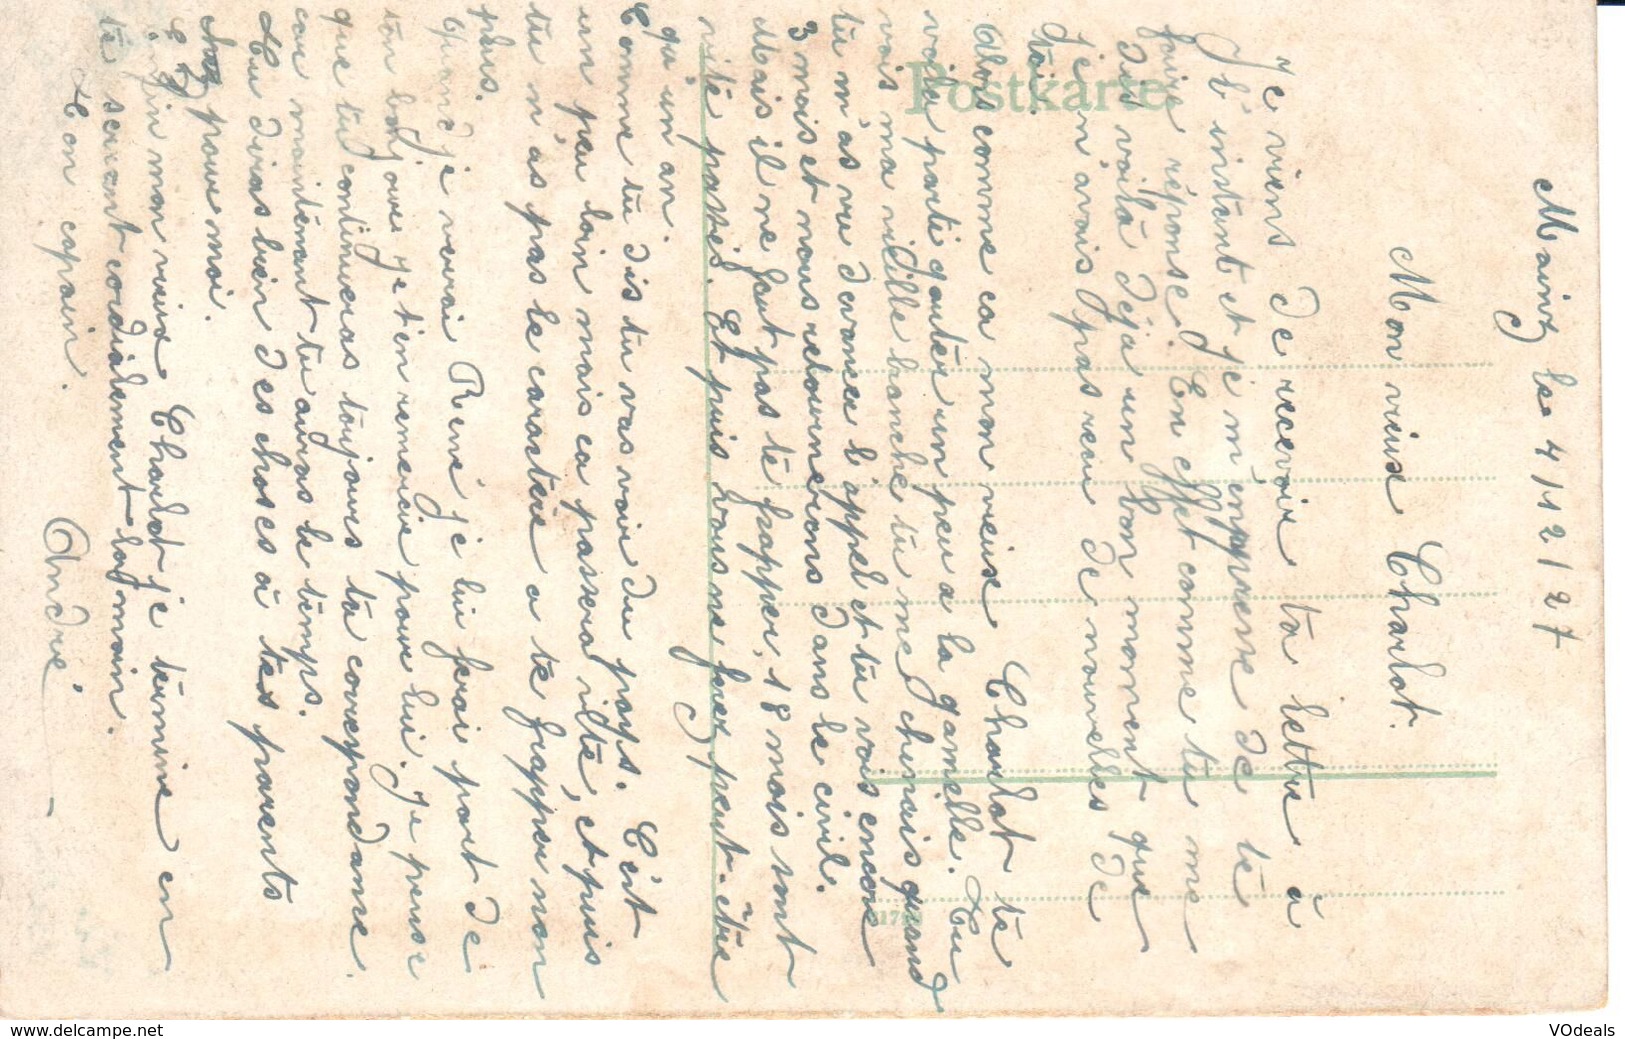 Mainz le 4/12/27
Mon vieux Charlot.
Je viens de recevoir ta lettre à
l'instant et je m'empresse de te
faire réponse. En effet comme tu me
dis voilà déja un bon moment que
je n'avais pas recu de nouvelles de
toi.
Alors comme ca mon vieux Charlot te
voila parti gouter un peu a la gamelle. Tu
vois ma vieille branche tu me chinais quand
tu m'as vu devancer l'appel et tu vois encore
3 mois et nous retournerons dans le civil.
Mais il ne faut pas te frapper, 18 mois sont
vite passés. Et puis vous ne ferez peut-être
qu'un an.
Comme tu dis tu vas voir du pays. C'est
un peu loin mais ca passera vite, et puis
tu n'as pas le caractère a te frapper non
plus.
Quand je verrai René je lui ferai part de
ton bonjour je t'en remercie pour lui. Je pense
que tu continueras toujours ta correspondance
car maintenant tu auras le temps.
Tu diras bien des choses à tes parents
pour moi.
Enfin mon vieux Charlot je termine en
te serrant cordialement la main.
Ton copain.
André
Postkarte
www.delcampe.net
VOdeals